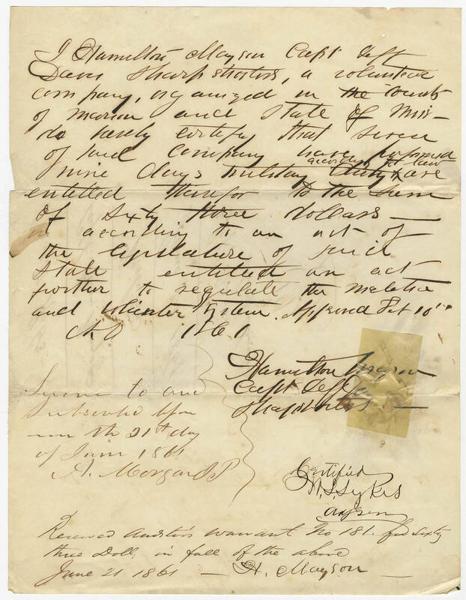 I Hamilton Mayson Capt Jeff
Davis Sharpshooters, a volunteer
company, organized in the County
of Marion and State of Miss
do hereby certify that seven
of said company have performed
according to law
nine days military duty & are
entitled therefor to the sum
of sixty three dollars —
according to an act of
the legislature of said
State entitled an act
further to regulate the militia
and volunteer System. Approved Feb 10th
AD 1861
Hamilton Mayson
Capt Jeff
Sharpshooters —
Sworn to and
Subscribed before
me the 21st day
of June 1861
A. Morgan J.P.
Certified
Sykes
Received Auditors warrant No 181. for Sixty
three Doll. in full of the above
June 21 1861 — H. Mayson —